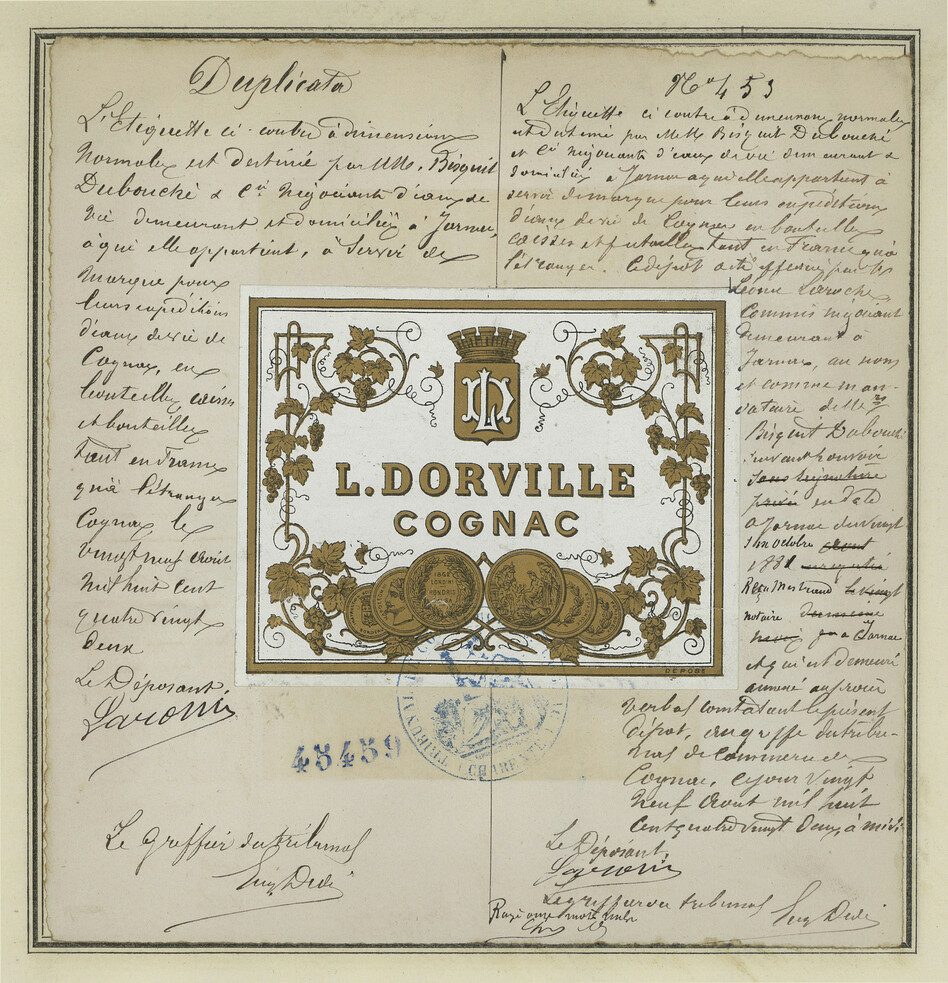 Duplicata
L'Etiquette ci-contre à dimensions
Normales est destiné par MM. Bisquit
Dubouché & Cie Négociants d'eaux de
vie demeurant et domiciliés à Jarnac,
à qui elle appartient, à Servir de
Marque pour
leurs expéditions
d'eaux de vie de
Cognac, en
bouteilles caisses
et bouteilles
tant en France
qu'à l'étranger
Cognac le
vingt neuf Août
Mil huit cent
quatre vingt
deux
Le Déposant
Laroche
Le Greffier du tribunal
Eug Didi
No 453
L'Etiquette ci contre à dimensions normales
est destiné par MM Bisquit Dubouché
et Cie négociants d'eaux de vie demeurant &
domiciliés à Jarnac à qui elle appartient à
servir de marque pour leurs expéditions
d'eaux de vie de Cognac en bouteilles
caisses et futailles tant en France qu'à
l'étranger. Ce dépôt a été effectué par
Léonce Laroche
Commis négociant
demeurant à
Jarnac, au nom
et comme man-
dataire de MM rs
Bisquit Dubouché
suivant pouvoir
sous signature
privée en date
à Jarnac du vingt
un octobre août
1881
Reçu
notaire
à Jarnac
et qui est demeuré
annexé au procès
verbal constatant le présent
dépôt, au greffe du tribu-
nal de Commerce de
Cognac, ce jour vingt
neuf Août mil huit
cent quatre vingt deux, à midi
Le Déposant
Laroche
Le greffier du tribunal
Eug Didi
Rayé onze mots nuls
LD
L. DORVILLE
COGNAC
1862
LONDINI
HONORIS
CAUSA
DÉPOSÉ
TRIBUNAL
CHARENTE
45459